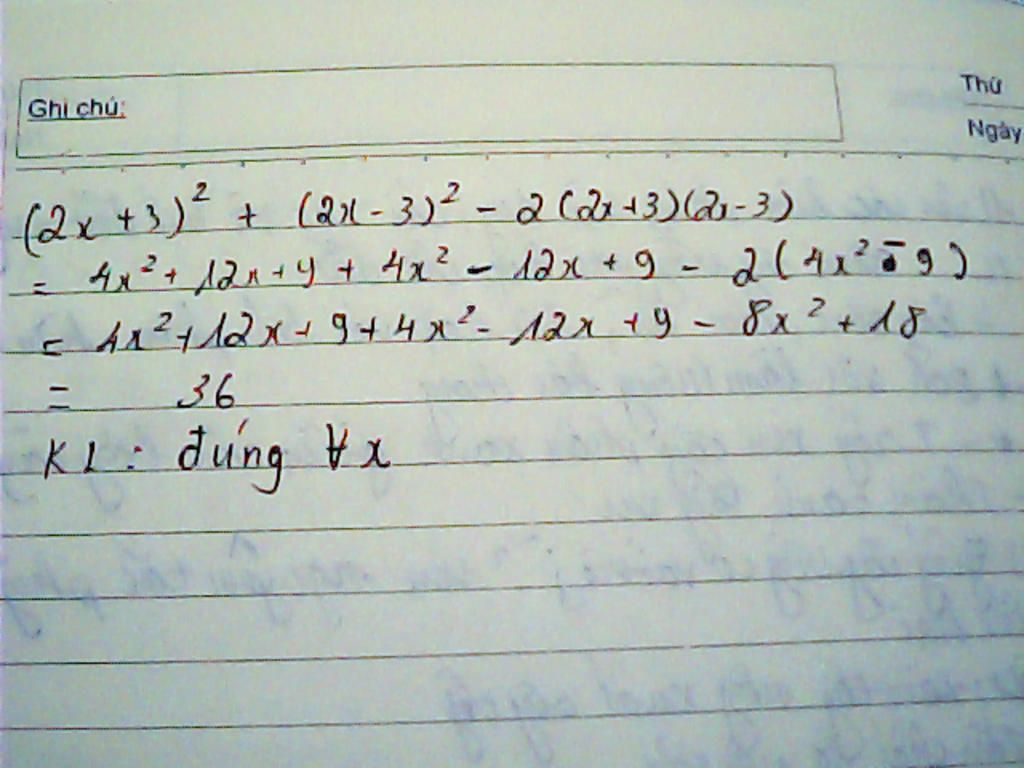 Ghi chú:
Thứ
Ngày
(2x + 3)² + (2x - 3)² - 2(2x+3)(2x-3)
= 4x² + 12x + 9 + 4x² - 12x + 9 - 2(4x² - 9)
= 4x² + 12x + 9 + 4x² - 12x + 9 - 8x² + 18
= 36
KL: đúng ∀x